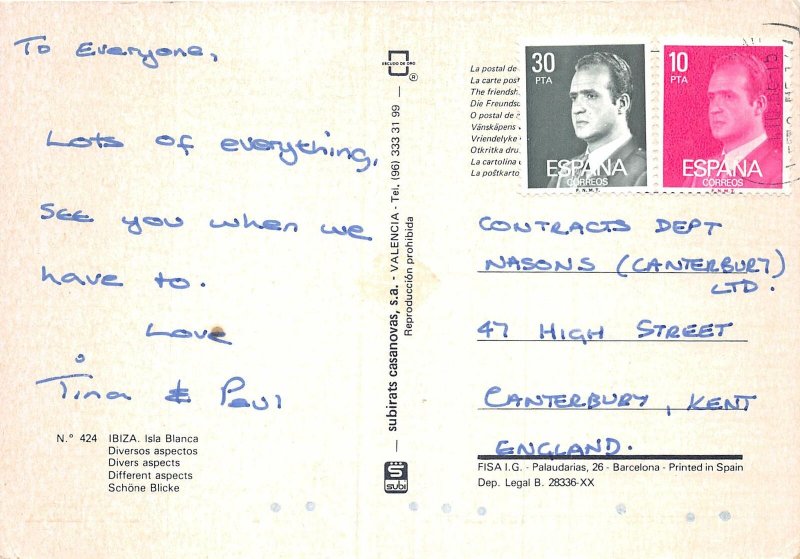 To Everyone,
Lots of everything,
see you when we
have to.
Love
Tina & Paul
N.° 424 IBIZA. Isla Blanca
Diversos aspectos
Divers aspects
Different aspects
Schöne Blicke
ESCUDO DE ORO
®
subirats casanovas, s.a. - VALENCIA - Tel. (96) 333 31 99
Reproducción prohibida
S
subi
La postal de
La carte post
The friendsh
Die Freundsc
O postal de
Vänskåpens
Vriendelyke
Otkritka dru
La cartolina
La poštkarto
30
PTA
ESPAÑA
CORREOS
F.N.M.T.
10
PTA
ESPAÑA
CORREOS
F.N.M.T.
CONTRACTS DEPT
NASONS (CANTERBURY)
LTD.
47 HIGH STREET
CANTERBURY, KENT
ENGLAND.
FISA I.G. - Palaudarias, 26 - Barcelona - Printed in Spain
Dep. Legal B. 28336-XX